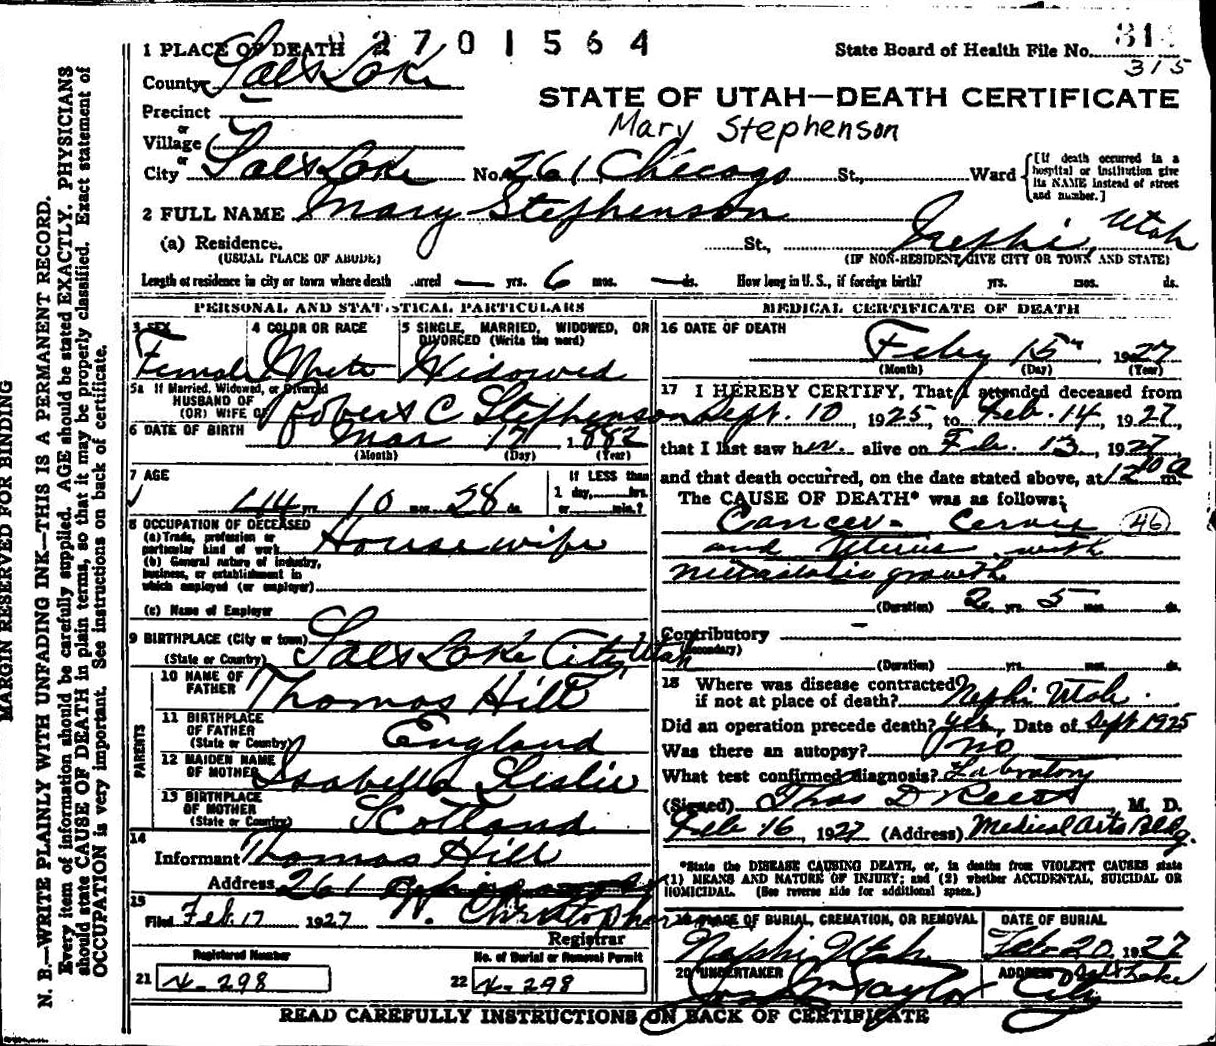 MARGIN RESERVED FOR BINDING
N. B.—WRITE PLAINLY WITH UNFADING INK—THIS IS A PERMANENT RECORD.
Every item of information should be carefully supplied. AGE should be stated EXACTLY. PHYSICIANS
should state CAUSE OF DEATH in plain terms, so that it may be properly classified. Exact statement of
OCCUPATION is very important. See instructions on back of certificate.
2701564
State Board of Health File No. 31
315
1 PLACE OF DEATH
County Salt Lake
STATE OF UTAH—DEATH CERTIFICATE
Mary Stephenson
Precinct
or
Village
or
City Salt Lake No. 261 Chicago St., Ward
[If death occurred in a
hospital or institution give
its NAME instead of street
and number.]
2 FULL NAME Mary Stephenson
(a) Residence. St., Nephi, Utah
(USUAL PLACE OF ABODE) (IF NON-RESIDENT GIVE CITY OR TOWN AND STATE)
Length of residence in city or town where death occurred — yrs. 6 mos. — ds. How long in U. S., if foreign birth? yrs. mos. ds.
PERSONAL AND STATISTICAL PARTICULARS
3 SEX
Female
4 COLOR OR RACE
White
5 SINGLE, MARRIED, WIDOWED, OR
DIVORCED (Write the word)
Widowed
5a If Married, Widowed, or Divorced
HUSBAND OF
(OR) WIFE OF Robert C Stephenson
6 DATE OF BIRTH Mar 17 1882
(Month) (Day) (Year)
7 AGE
44 yrs. 10 mos. 28 ds.
If LESS than
1 day, hrs.
or min.?
8 OCCUPATION OF DECEASED
(a) Trade, profession or
particular kind of work Housewife
(b) General nature of industry,
business, or establishment in
which employed (or employer)
(c) Name of Employer
9 BIRTHPLACE (City or town) Salt Lake City, Utah
(State or Country)
PARENTS
10 NAME OF
FATHER Thomas Hill
11 BIRTHPLACE
OF FATHER England
(State or Country)
12 MAIDEN NAME
OF MOTHER Isabella Leslie
13 BIRTHPLACE
OF MOTHER Scotland
(State or Country)
14
Informant Thomas Hill
Address 261
15
Filed Feb. 17 1927 W. Christopherson
Registrar
Registered Number
21 X-298
No. of Burial or Removal Permit
22 X-298
MEDICAL CERTIFICATE OF DEATH
16 DATE OF DEATH
Feby 15th, 1927
(Month) (Day) (Year)
17 I HEREBY CERTIFY, That I attended deceased from
Sept. 10, 1925, to Feb. 14, 1927,
that I last saw her alive on Feb. 13, 1927,
and that death occurred, on the date stated above, at 12 10 a m.
The CAUSE OF DEATH* was as follows:
Cancer - Cervix 46
and Uterus with
metastatic growth
(Duration) 2 yrs. 5 mos. ds.
Contributory —
(Secondary)
(Duration) yrs. mos. ds.
18 Where was disease contracted
if not at place of death? Nephi Utah.
Did an operation precede death? yes, Date of Sept 1925
Was there an autopsy? no
What test confirmed diagnosis? Laboratory
(Signed) Thos D Rees, M. D.
Feb 16, 1927 (Address) Medical Arts Bldg.
*State the DISEASE CAUSING DEATH, or, in deaths from VIOLENT CAUSES state
(1) MEANS AND NATURE OF INJURY; and (2) whether ACCIDENTAL, SUICIDAL OR
HOMICIDAL. (See reverse side for additional space.)
19 PLACE OF BURIAL, CREMATION, OR REMOVAL
Nephi Utah
DATE OF BURIAL
Feb 20 1927
20 UNDERTAKER
Jos Wm Taylor
ADDRESS Salt Lake
City
READ CAREFULLY INSTRUCTIONS ON BACK OF CERTIFICATE